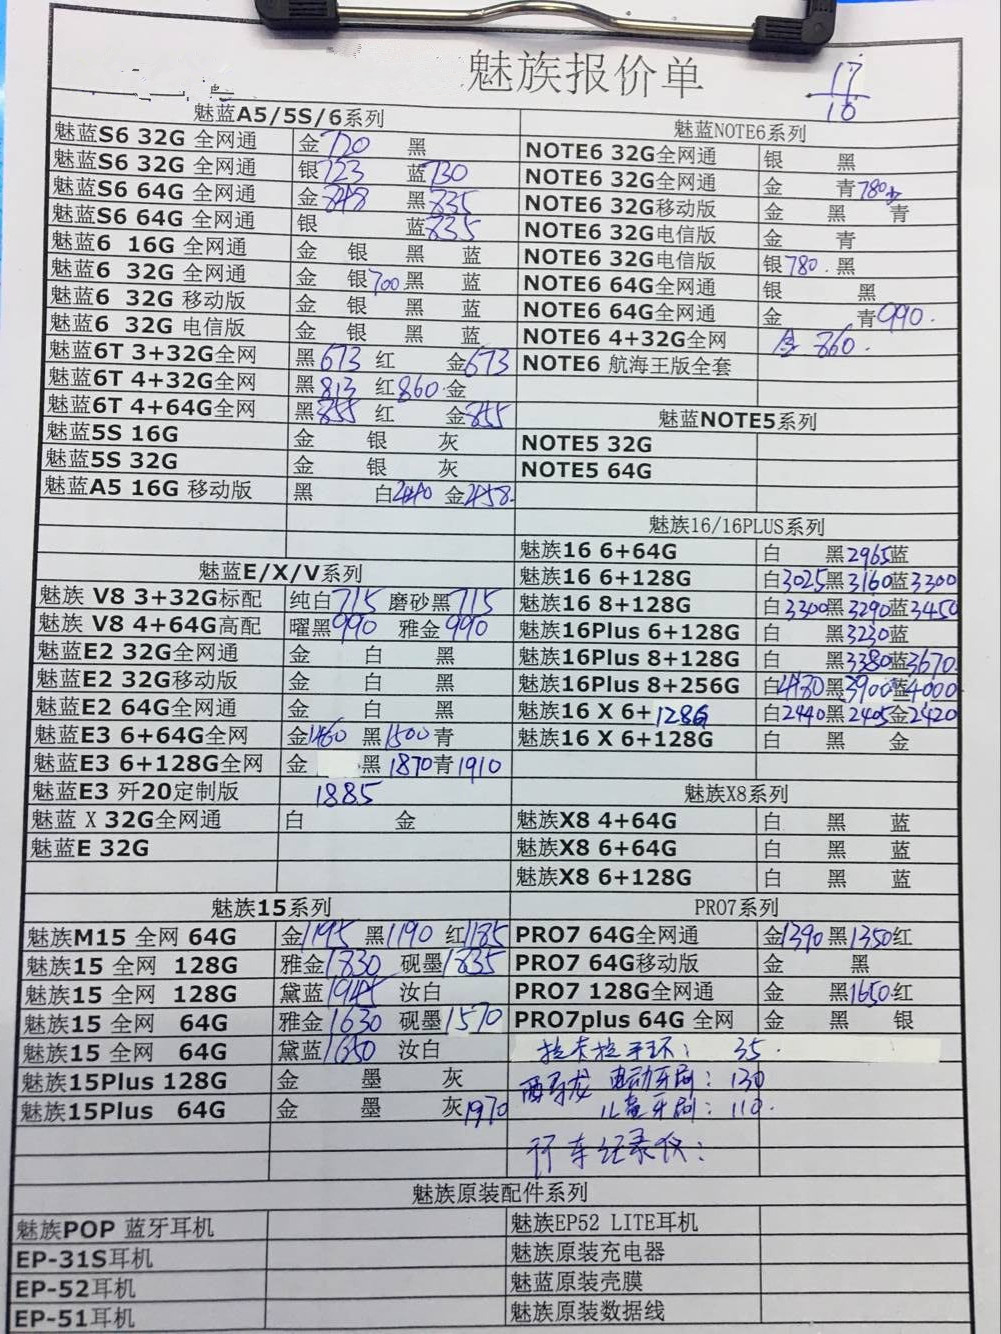 魅族报价单
17
10
魅蓝A5/5S/6系列
魅蓝S6 32G 全网通 金720 黑
魅蓝S6 32G 全网通 银723 蓝730
魅蓝S6 64G 全网通 金848 黑835
魅蓝S6 64G 全网通 银 蓝835
魅蓝6 16G 全网通 金 银 黑 蓝
魅蓝6 32G 全网通 金 银700黑 蓝
魅蓝6 32G 移动版 金 银 黑 蓝
魅蓝6 32G 电信版 金 银 黑 蓝
魅蓝6T 3+32G全网 黑673 红 金673
魅蓝6T 4+32G全网 黑813 红860 金
魅蓝6T 4+64G全网 黑855 红 金855
魅蓝5S 16G 金 银 灰
魅蓝5S 32G 金 银 灰
魅蓝A5 16G 移动版 黑 白 金
魅蓝E/X/V系列
魅族 V8 3+32G标配 纯白715 磨砂黑715
魅族 V8 4+64G高配 曜黑990 雅金990
魅蓝E2 32G全网通 金 白 黑
魅蓝E2 32G移动版 金 白 黑
魅蓝E2 64G全网通 金 白 黑
魅蓝E3 6+64G全网 金1460 黑1500青
魅蓝E3 6+128G全网 金 黑1870青1910
魅蓝E3 歼20定制版 1885
魅蓝 X 32G全网通 白 金
魅蓝E 32G
魅族15系列
魅族M15 全网 64G 金1195 黑1190 红1185
魅族15 全网 128G 雅金1830 砚墨1835
魅族15 全网 128G 黛蓝1945 汝白
魅族15 全网 64G 雅金1630 砚墨1570
魅族15 全网 64G 黛蓝1650 汝白
魅族15Plus 128G 金 墨 灰
魅族15Plus 64G 金 墨 灰1970
魅蓝NOTE6系列
NOTE6 32G全网通 银 黑
NOTE6 32G全网通 金 青780
NOTE6 32G移动版 金 黑 青
NOTE6 32G电信版 金 青
NOTE6 32G电信版 银780. 黑
NOTE6 64G全网通 银 黑
NOTE6 64G全网通 金 青990.
NOTE6 4+32G全网 金 860.
NOTE6 航海王版全套
魅蓝NOTE5系列
NOTE5 32G
NOTE5 64G
魅族16/16PLUS系列
魅族16 6+64G 白 黑2965蓝
魅族16 6+128G 白3025黑3160蓝3300
魅族16 8+128G 白3300黑3290蓝3450
魅族16Plus 6+128G 白 黑3230蓝
魅族16Plus 8+128G 白 黑3380蓝3670.
魅族16Plus 8+256G 白4180黑3900蓝4000
魅族16 X 6+128G 白2440黑2405金2420
魅族16 X 6+128G 白 黑 金
魅族X8系列
魅族X8 4+64G 白 黑 蓝
魅族X8 6+64G 白 黑 蓝
魅族X8 6+128G 白 黑 蓝
PRO7系列
PRO7 64G全网通 金1390黑1350红
PRO7 64G移动版 金 黑
PRO7 128G全网通 金 黑1650红
PRO7plus 64G 全网 金 黑 银
拉卡拉手环: 35.
西马龙 电动牙刷: 130
儿童牙刷: 110.
行车记录仪:
魅族原装配件系列
魅族POP 蓝牙耳机 魅族EP52 LITE耳机
EP-31S耳机 魅族原装充电器
EP-52耳机 魅蓝原装壳膜
EP-51耳机 魅族原装数据线